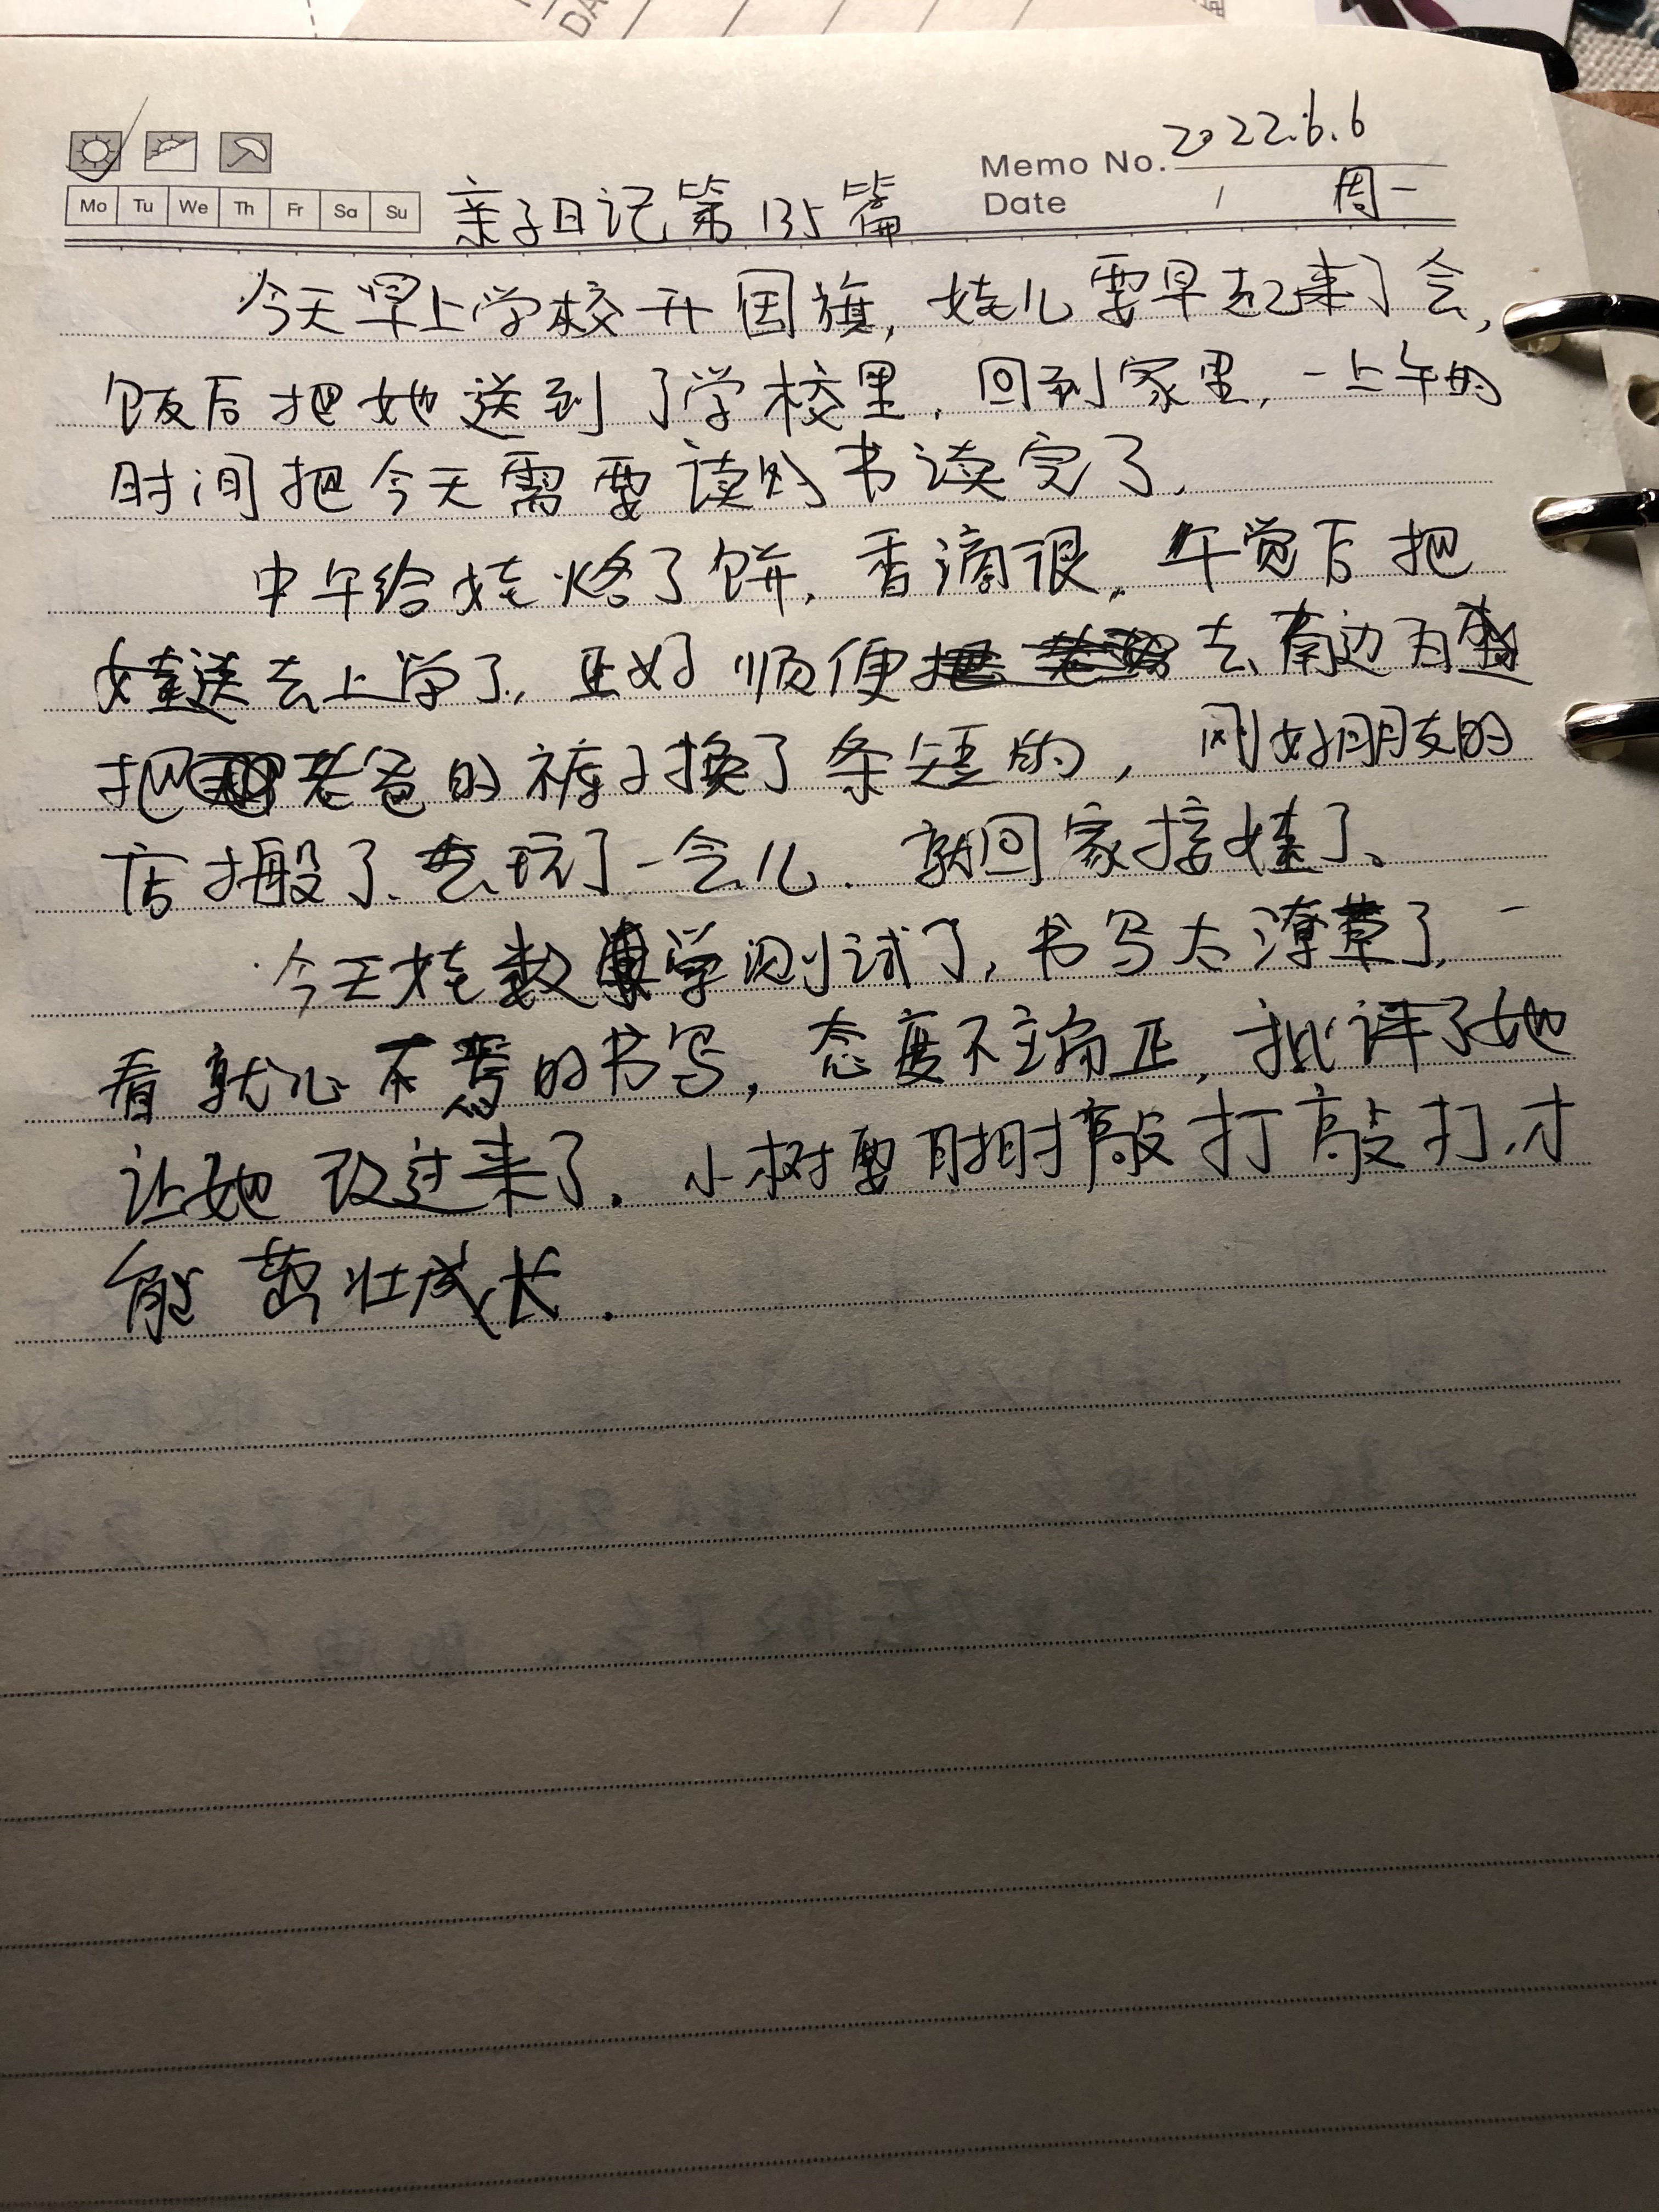 2022.6.6
Memo No.
Mo Tu We Th Fr Sa Su
亲子日记第135篇
Date / 周一
今天早上学校升国旗,娃儿要早起来了会,
饭后把她送到了学校里.回到家里,一上午的
时间把今天需要读的书读完了.
中午给娃烙了饼,香滴很。午觉后把
娃送去上学了,正好顺便去南边
把老爸的裤子换了条短的,刚好朋友的
店搬了、去玩了一会儿.就回家接娃了。
今天娃数学测试了,书写太潦草了,一
看就心不焉的书写,态度不端正,批评了她
让她改过来了.小树要时时敲打敲打,才
能茁壮成长.